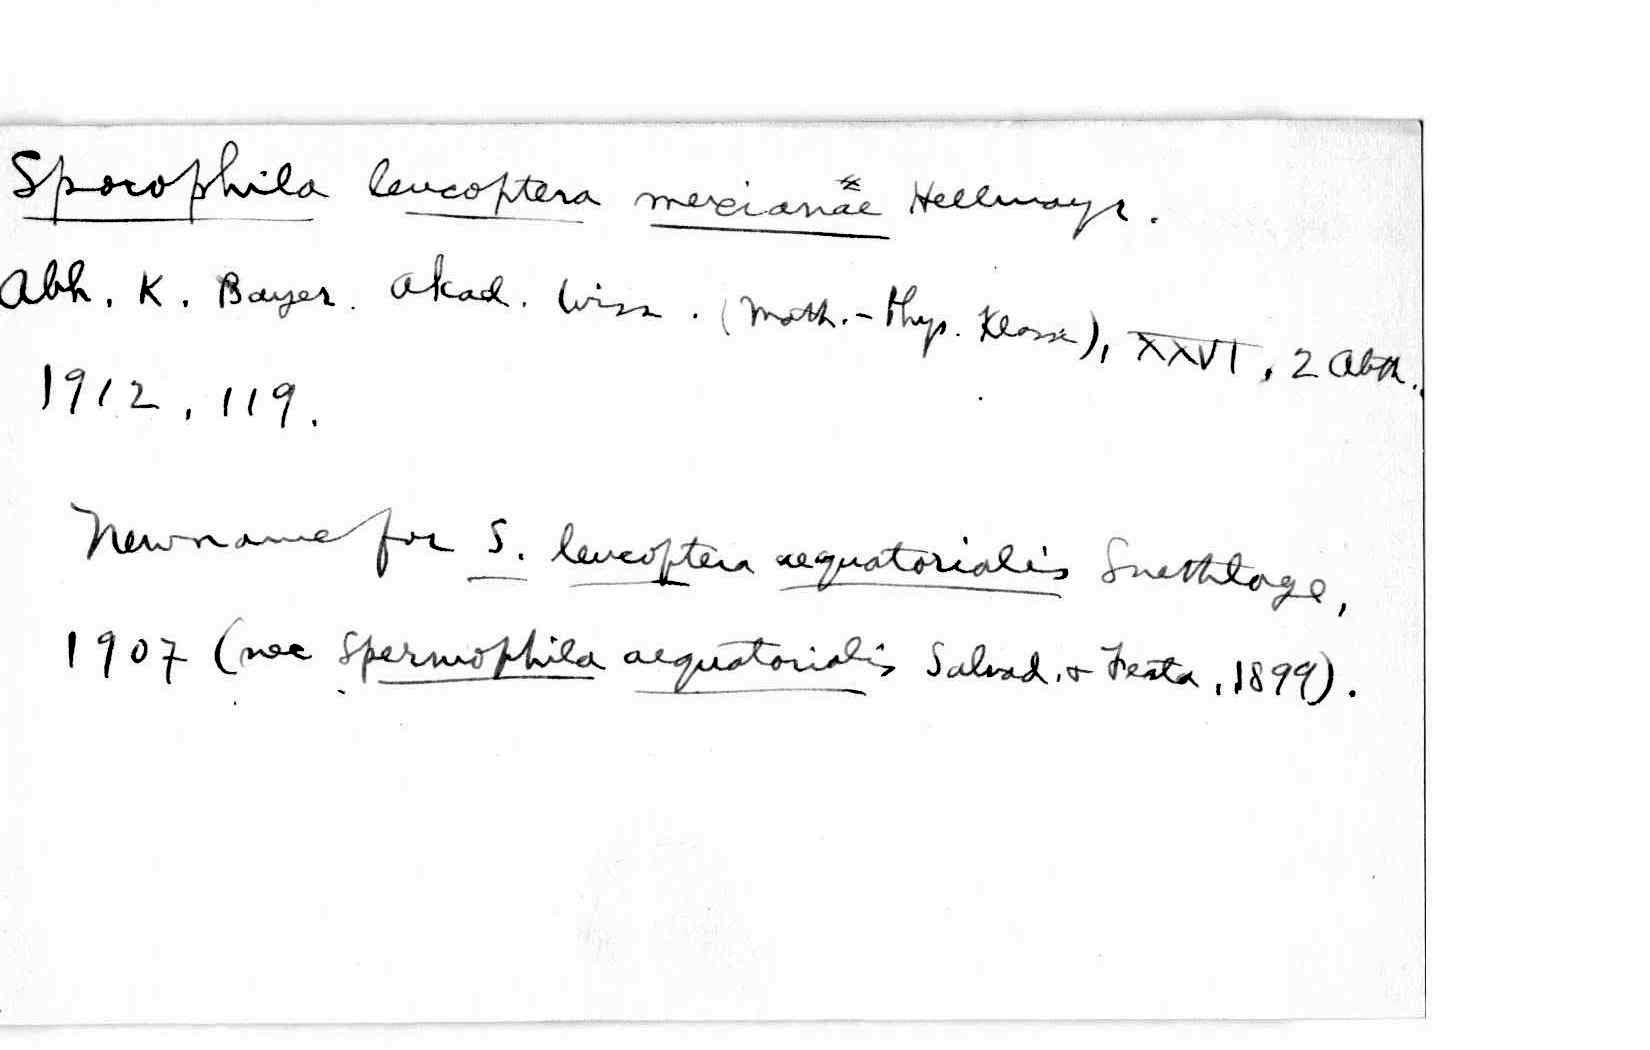 Sporophila leucoptera mexianae Hellmayr.
Abh. K. Bayer. Akad. Wiss. (Math.-Phys. Klasse), XXVI, 2 Abth.,
1912, 119.
New name for S. leucoptera aequatorialis Snethlage,
1907 (nec Spermophila aequatorialis Salvad. & Festa, 1899).